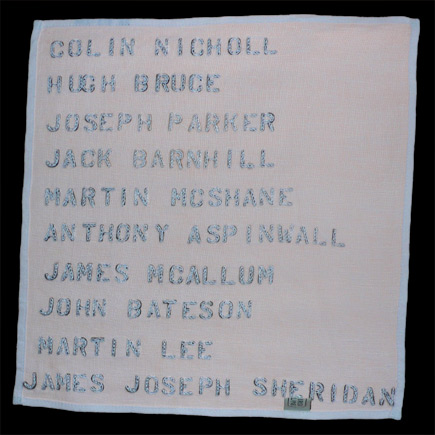 COLIN NICHOLL
HUGH BRUCE
JOSEPH PARKER
JACK BARNHILL
MARTIN MCSHANE
ANTHONY ASPINWALL
JAMES MCALLUM
JOHN BATESON
MARTIN LEE
JAMES JOSEPH SHERIDAN